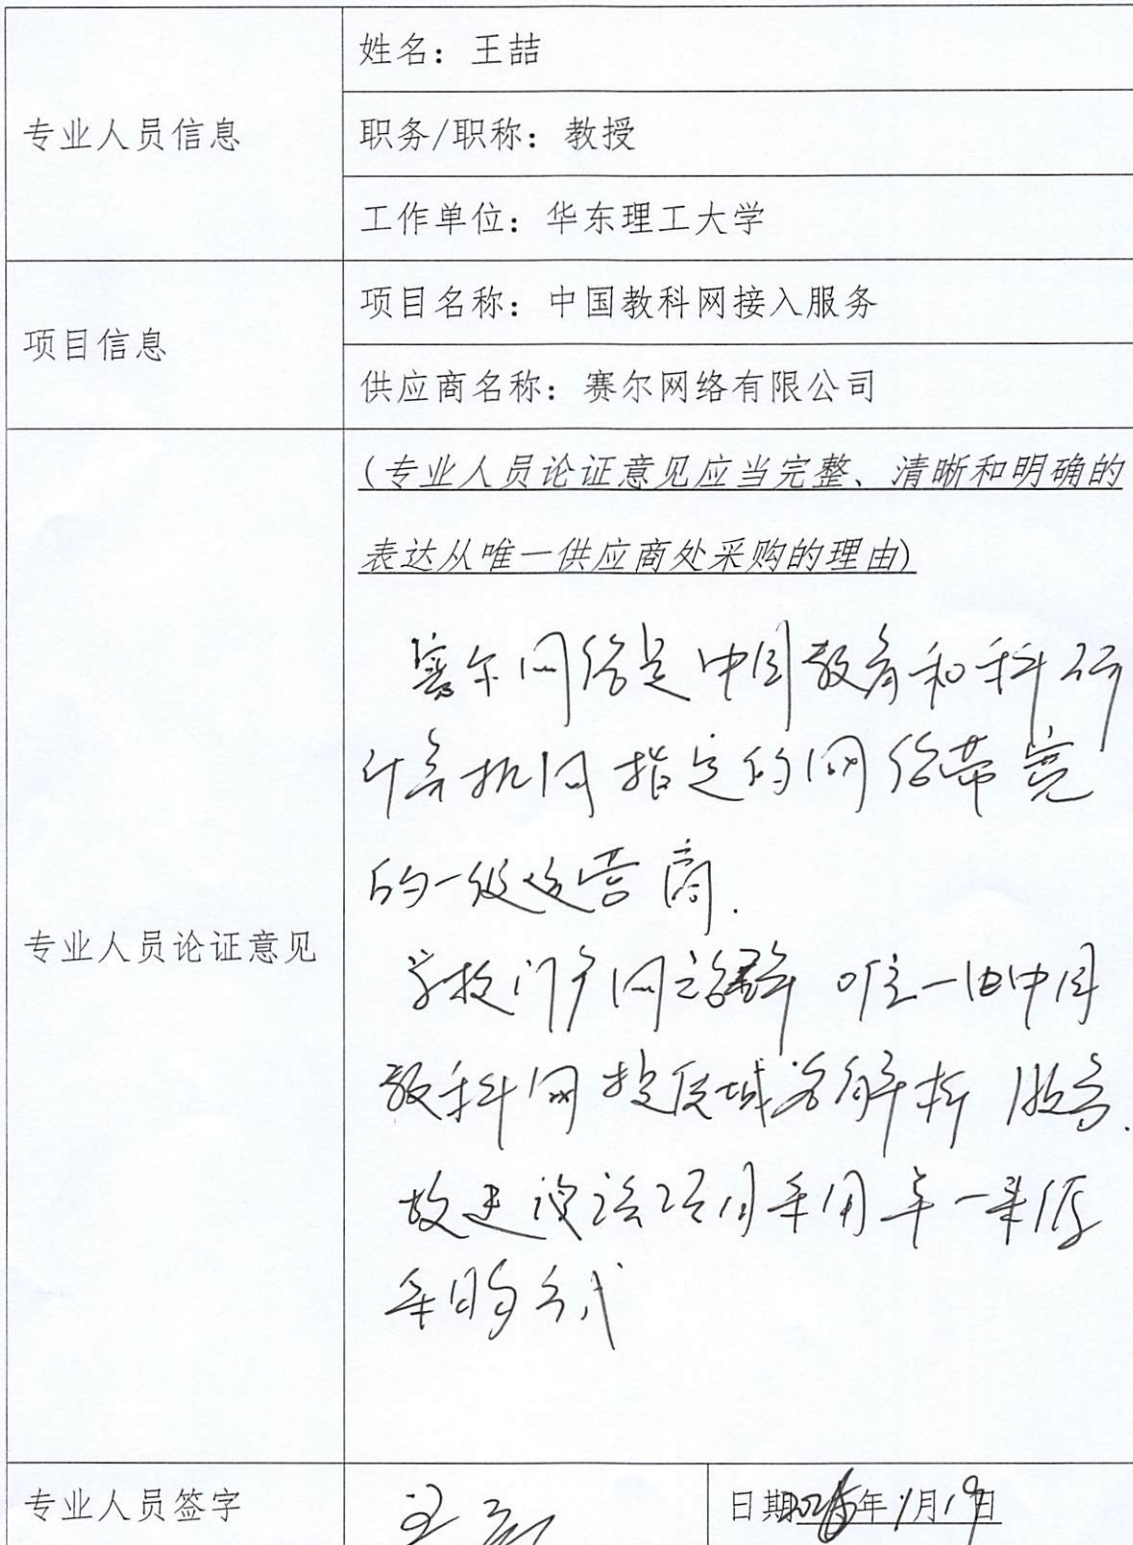 专业人员信息
姓名：王喆
职务/职称：教授
工作单位：华东理工大学
项目信息
项目名称：中国教科网接入服务
供应商名称：赛尔网络有限公司
专业人员论证意见
(专业人员论证意见应当完整、清晰和明确的
表达从唯一供应商处采购的理由)
赛尔网络是中国教育和科研
计算机网指定的网络带宽
的一级运营商.
学校门户网 唯一由中国
教科网提供域名解析服务.
故建议该项目采用单一来源
采购方式
专业人员签字
王喆
日期 年1月19日